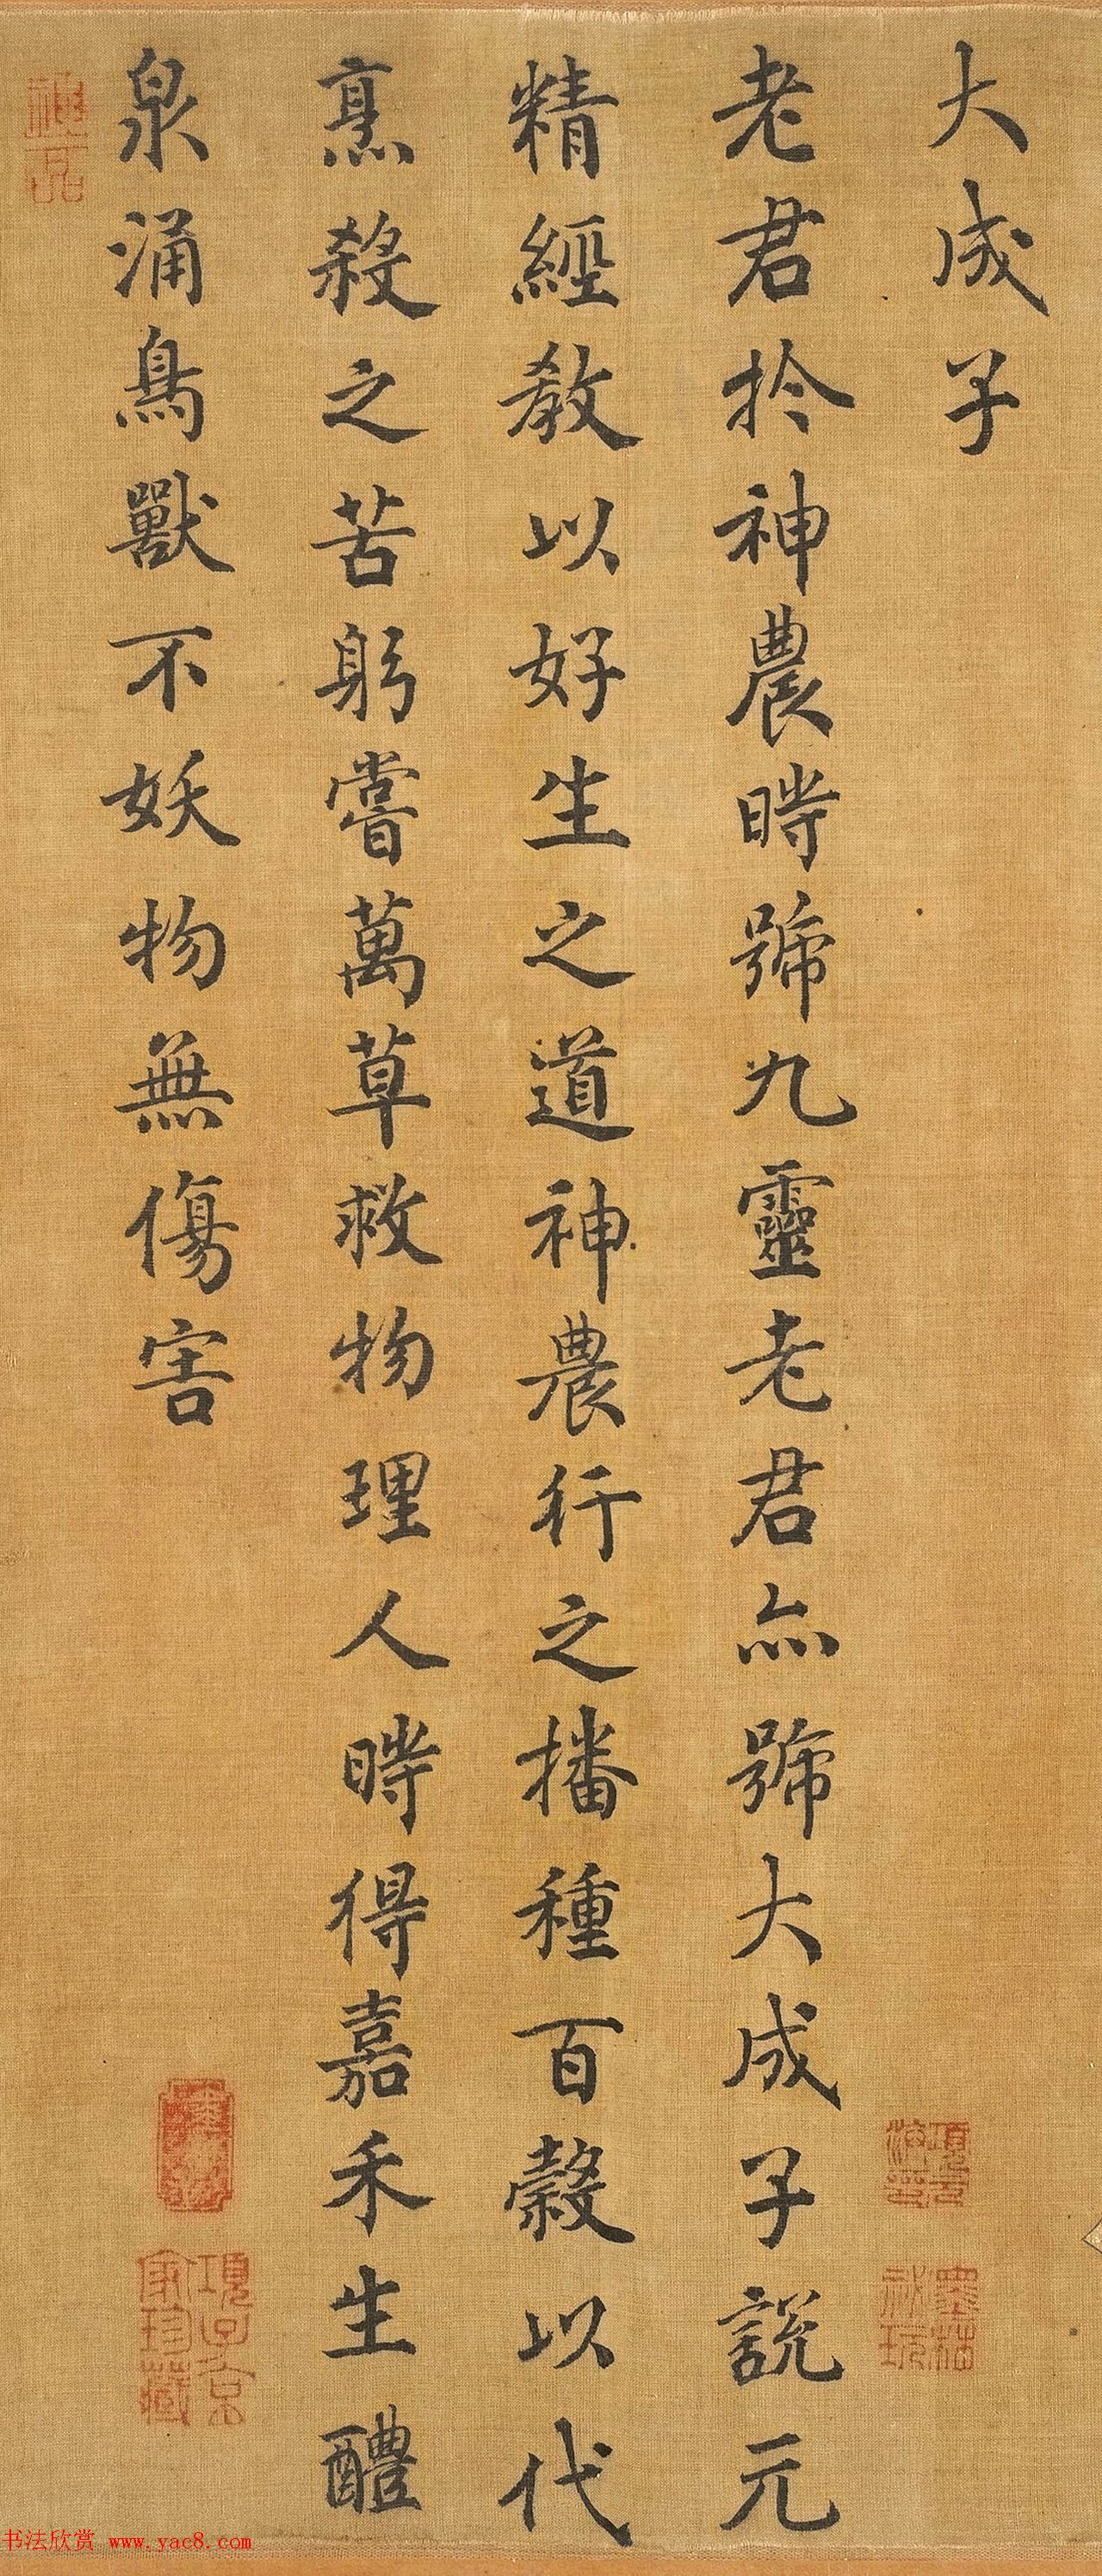 大成子
老君於神農時號九靈老君亦號大成子說元
精經教以好生之道神農行之播種百穀以代
烹殺之苦躬嘗萬草救物理人時得嘉禾生醴
泉涌鳥獸不妖物無傷害
神品
項子京家珍藏
项元汴印
墨林祕玩
书法欣赏 www.yac8.com